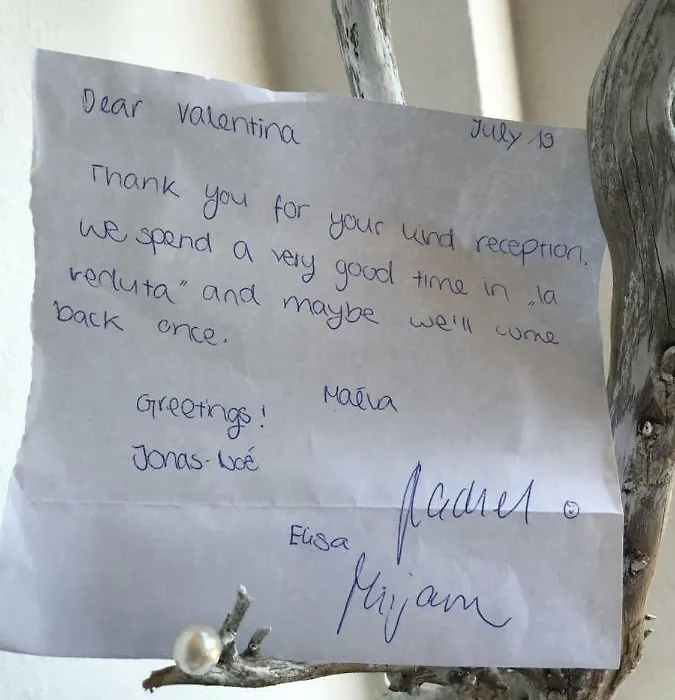 Dear Valentina
July 19
Thank you for your kind reception.
We spend a very good time in „la
reduta" and maybe we'll come
back once.
Greetings!
Maéva
Jonas-Noé
Rachel ☺
Elisa
Mirjam